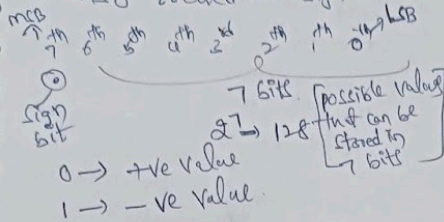 MSB LSB
7th 6th 5th 4th 3rd 2th 1th 0th
0
sign
bit
7 bits.
2^7 → 128 [possible values
that can be
stored in
7 bits]
0 → +ve value
1 → -ve value